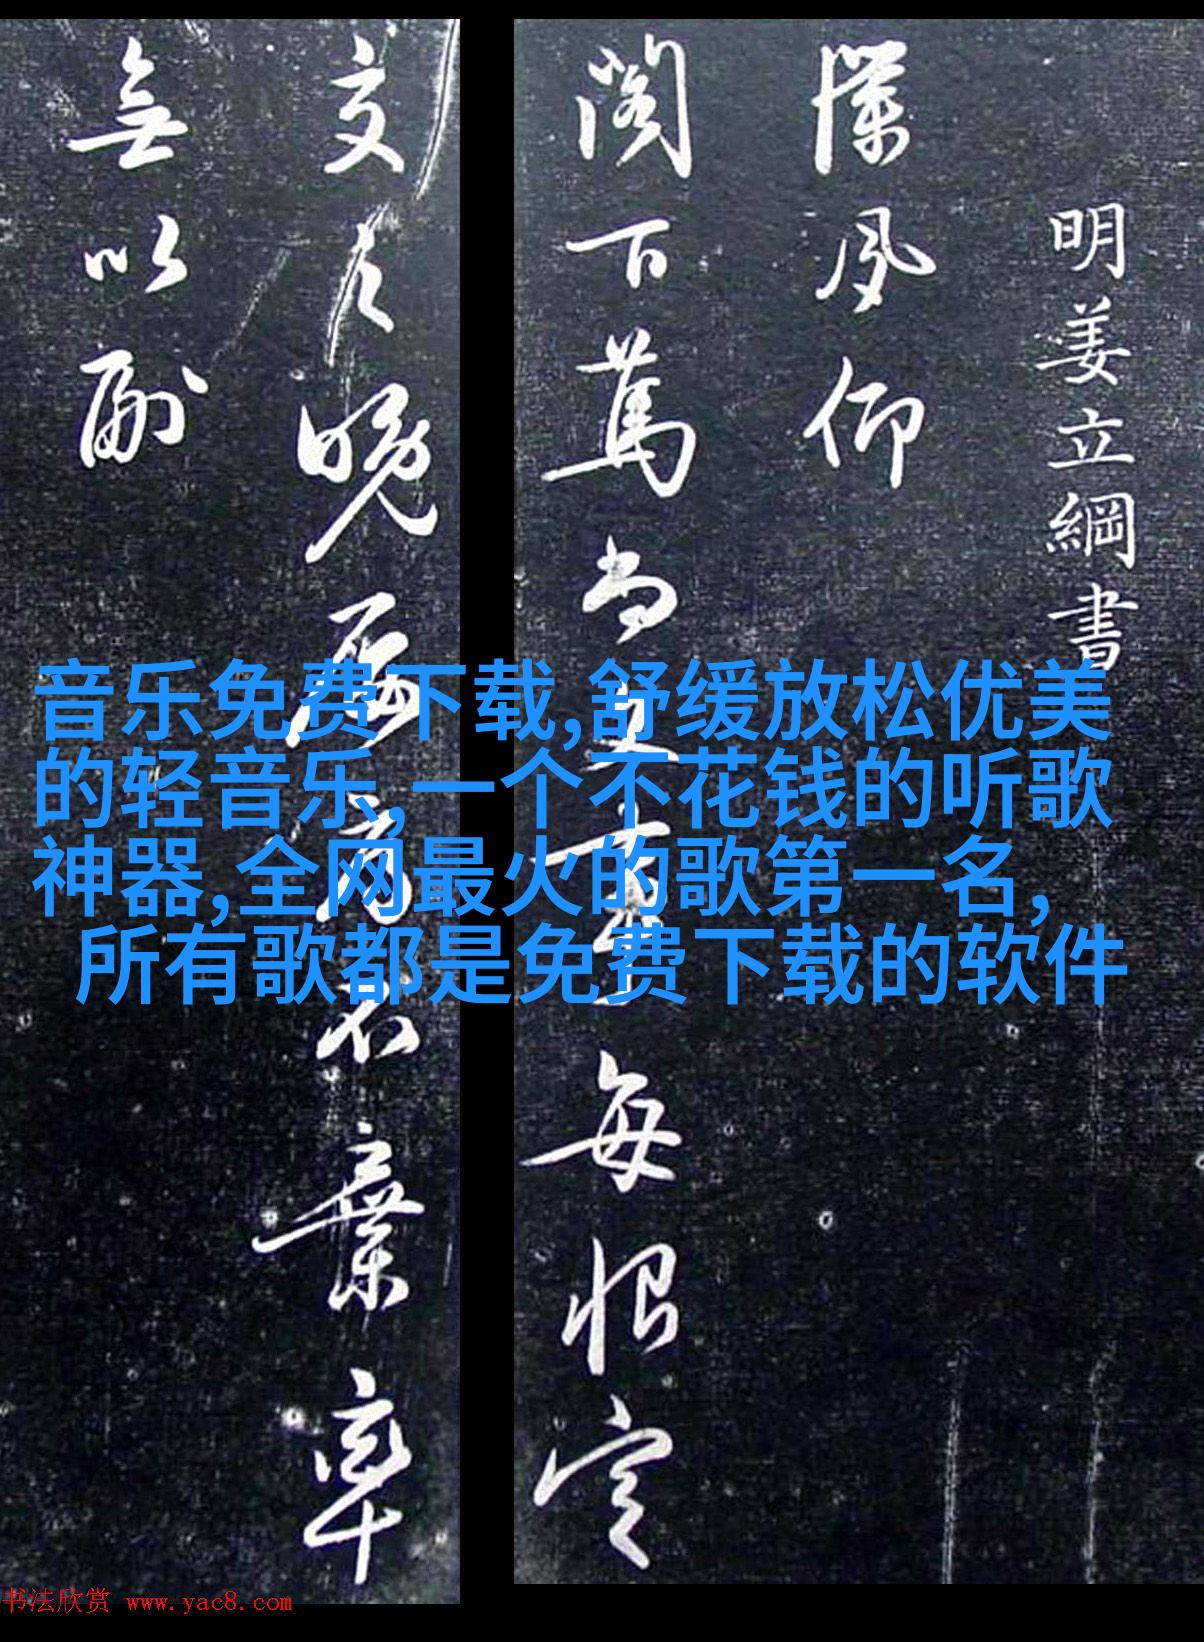 明姜立綱書
夙仰
閣萬每恨定
交之晚不棄率
無以副
音乐免费下载,舒缓放松优美
的轻音乐,一个不花钱的听歌
神器,全网最火的歌第一名,
所有歌都是免费下载的软件
书法欣赏 www.yac8.com